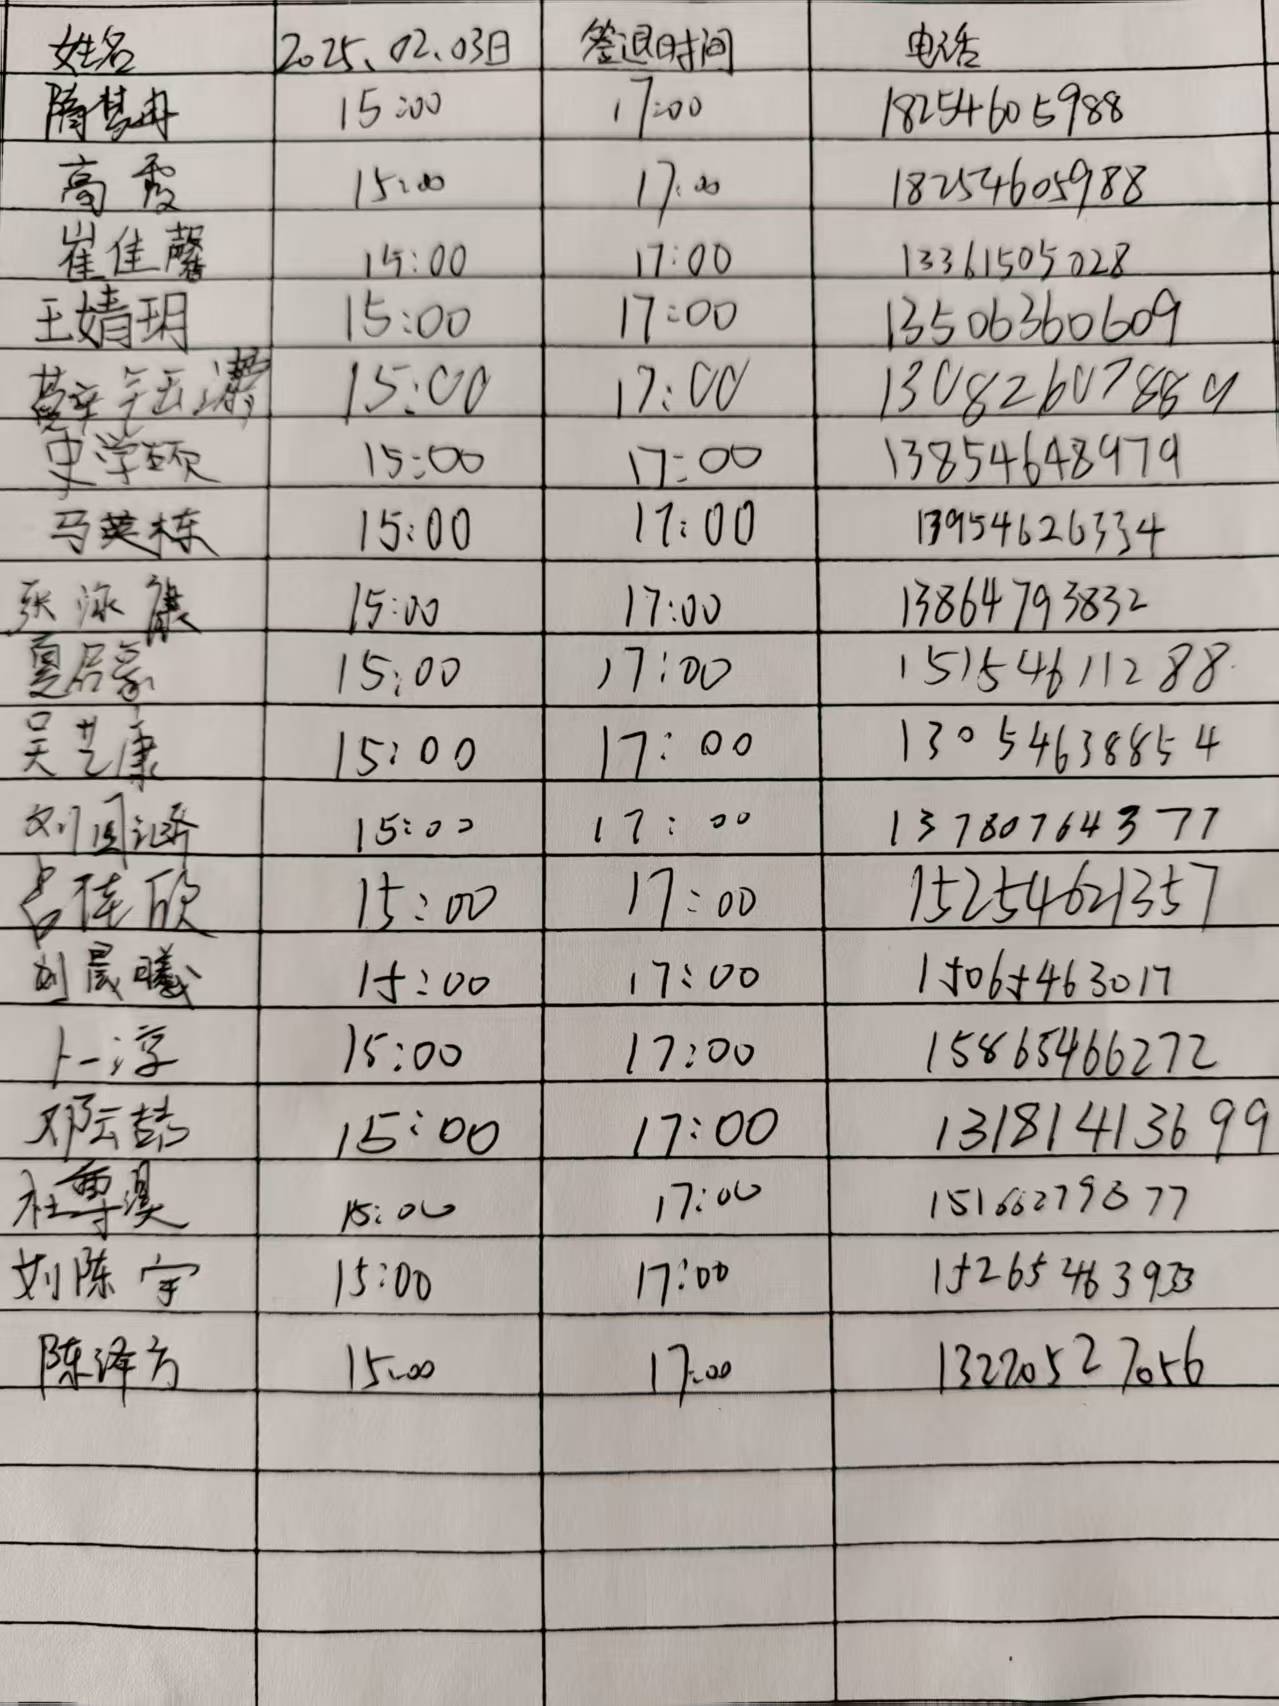 姓名 2025.02.03日 签退时间 电话
隋梦冉 15:00 17:00 18254605988
高霞 15:00 17:00 18254605988
崔佳馨 15:00 17:00 13361505028
王婧玥 15:00 17:00 13506360609
15:00 17:00 13082607889
史学硕 15:00 17:00 13854648979
马英栋 15:00 17:00 13954626334
张泳康 15:00 17:00 13864793832
夏启豪 15:00 17:00 15154611288
吴艺康 15:00 17:00 13054638854
刘国涵 15:00 17:00 13780764377
吕佳欣 15:00 17:00 15254621357
刘晨曦 15:00 17:00 15065463017
卜一淳 15:00 17:00 15865466272
邓云喆 15:00 17:00 13181413699
杜尊淏 15:00 17:00
刘陈宇 15:00 17:00 15265463933
陈泽方 15:00 17:00 13220527056